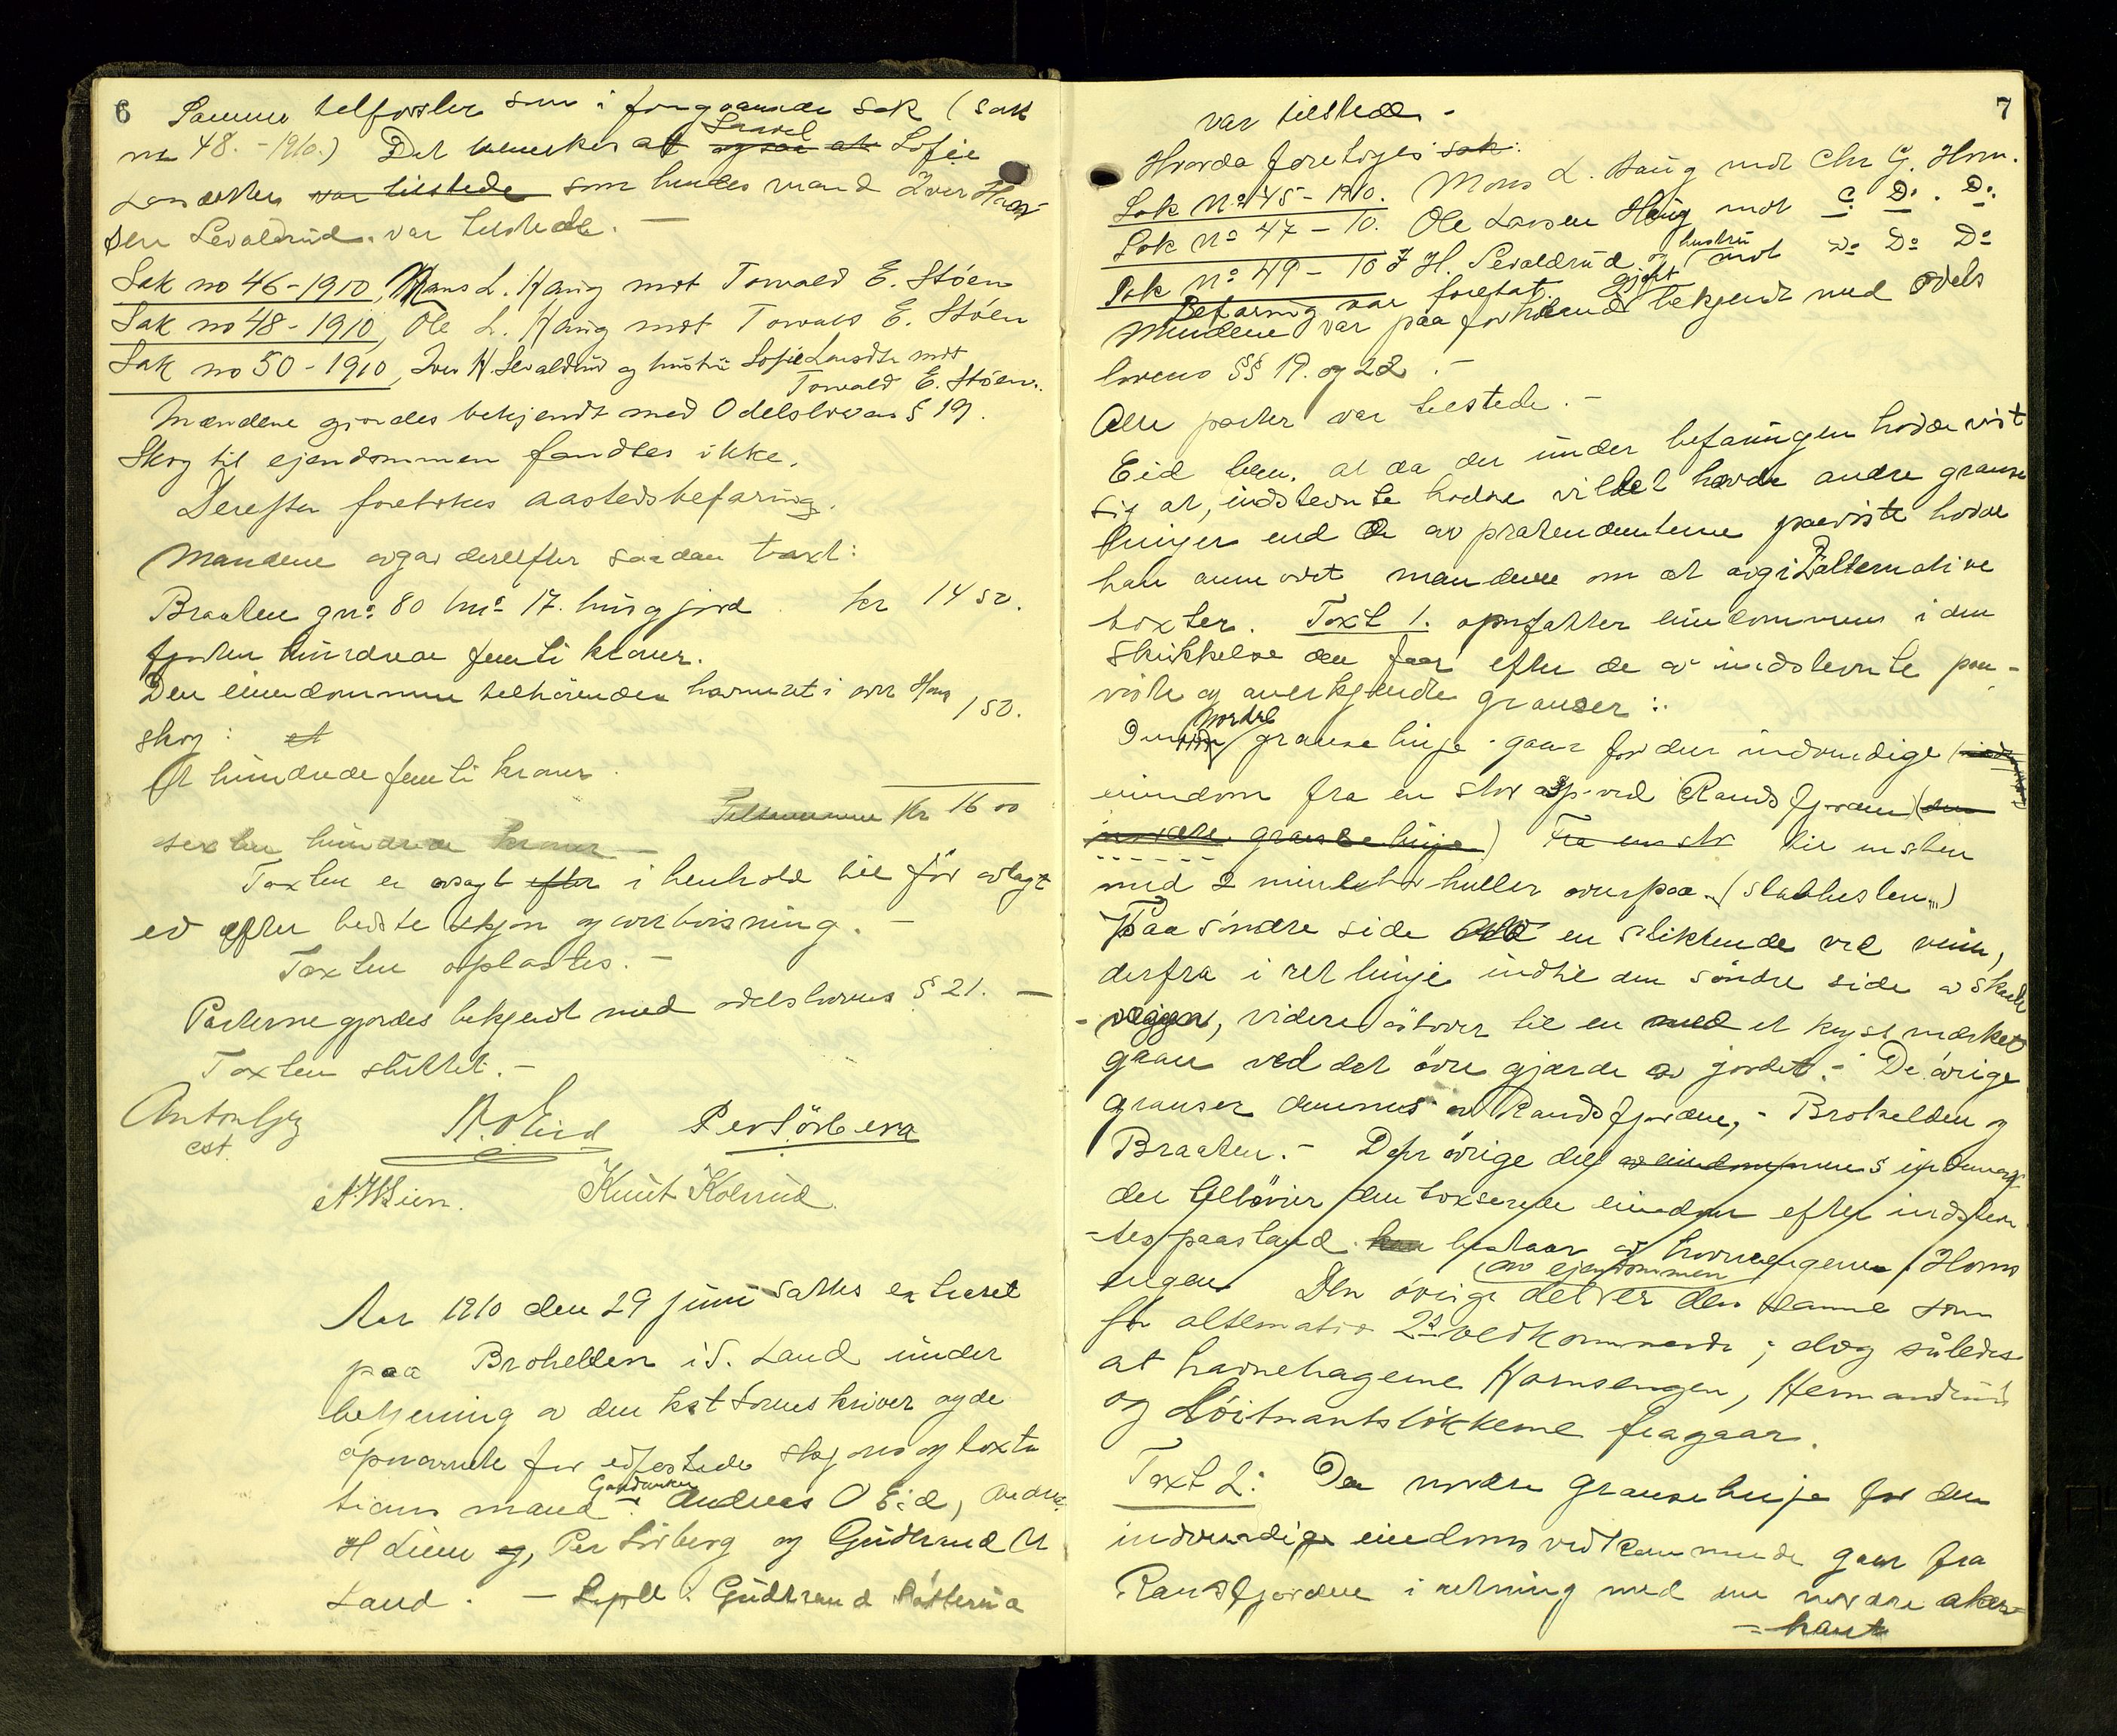 6
Samme tilførsler som i foreggaaende sak (sak
no 48. - 1910.) Det bemerkes at saavel ogsaa at Sofie
Larsdatter var tilstede som hendes mand Iver Han
sen Sevaldrud. var tilstede. —
Sak no 46 - 1910, Mons L. Haug mot Torvald E. Støen
Sak no 48 - 1910, Ole L. Haug mot Torvald E. Støen
Sak no 50 - 1910, Iver H. Sevaldrud og hustru Sofie Larsdtr mot
Torvald E. Støen.
Mændene gjordes bekjendt med Odelslovens § 19.
Skog til ejendommen fandtes ikke.
Derefter foretokes aastedsbefaring.
Mændene avgav derefter saadan taxt:
Braaten gno 80 bno 17. hus og jord kr 1450.
fjorten hundrede femti kroner.
Den eiendommen tilhørende havneret i
skog: et 150.
Et hundrede femti kroner.
Tilsammen Kr 1600
sexten hundrede kroner —
Taxten er avsagt efter i henhold til før avlagt
ed efter bedste skjøn og overbevisning. —
Taxten oplæstes. —
Parterne gjordes bekjendt med odelslovens § 21. —
Taxten sluttet. —
A. O. Eid Per Sörberg
A. H. Lien. Knut Kolsrud
Aar 1910 den 29 juni sattes extraret
paa Brokelden i S. Land under
betjening av den kst sorenskriver og de
opnævnte før edfestede skjøns og taxta
tions mænd: Gaardbruker Andreas O Eid, Andre
H Lien og, Per Sörberg og Gudbrand M
Land. — Gudbrand
7
var tilstede. -
Hvorda foretoges sak:
Sak No 45 - 1910. Mons L. Haug mot Chr G. Horn.
Sak No 47 - 10. Ole Larsen Haug mot C. Do. Do.
Sak No 49 - 10 I H. Sevaldrud og hustru mot Do Do Do
Befaring var foretat.
Mændene var paa forhaand gjort bekjendt med odels
lovens §§ 19. og 22. -
Alle parter var tilstede. -
Eid bem. at da der under befaringen hadde vist
sig at, indstevnte hadde villet hævde andre grænse
linjer end de av prætendenterne paaviste hadde
han anmodet mændene om at avgi 2 alternative
taxter. Taxt 1. omfatter eiendommen i den
skikkelse den faar efter de av indstevnte paa-
viste og anerkjendte grænser:
Den nordre grænselinje gaar for den indvendige
eiendom fra en stor asp ved Randsfjorden (den
nordre grænselinje) Fra en stor til en sten
med 2 minebor huller ovenpaa. (Stabbesten)
Paa søndre side av en stikrende ved veien,
derfra i ret linje indtil den søndre side av skade
-væggen, videre østover til en med et kryss merket
gran ved det øvre gjærde av jordet. - De øvrige
grænser dannes av Randsfjorden, - Brokelden og
Braaten. - Den øvrige del av eiendommens
der tilhører den taxerede eiendom efter indstevn
-tes paastand han bestaar av havnehagerne Horns
engen. Den øvrige del av ejendommen er den samme som
for alternativ 2s vedkommende; dog således
at havnehagerne Hornsengen, Hermandrud
og Löitnantslökkerne fragaar.
Taxt 2: Den nordre grænselinje for den
indvendige eiendoms vedkommende gaar fra
Randsfjorden i retning med den nordre aker-
- kant